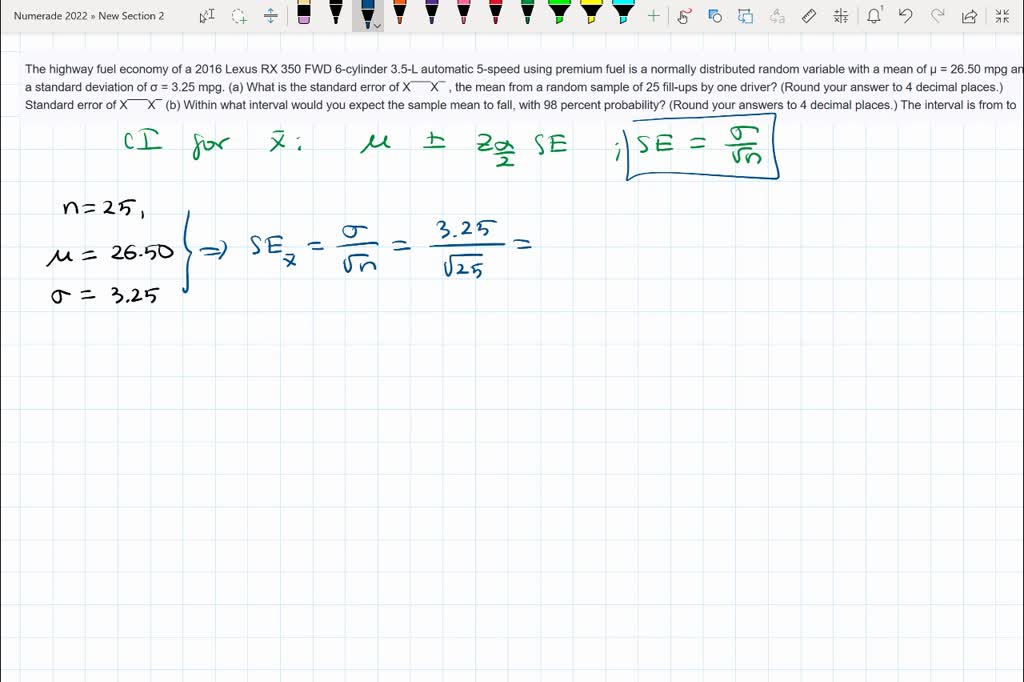 Numerade 2022 » New Section 2
The highway fuel economy of a 2016 Lexus RX 350 FWD 6-cylinder 3.5-L automatic 5-speed using premium fuel is a normally distributed random variable with a mean of μ = 26.50 mpg an
a standard deviation of σ = 3.25 mpg. (a) What is the standard error of X¯¯¯X¯, the mean from a random sample of 25 fill-ups by one driver? (Round your answer to 4 decimal places.)
Standard error of X¯¯¯X¯ (b) Within what interval would you expect the sample mean to fall, with 98 percent probability? (Round your answers to 4 decimal places.) The interval is from to
CI for x̄: μ ± Zα/2 SE ; SE = σ/√n
n=25,
μ = 26.50 ⇒ SEx̄ = σ/√n = 3.25/√25 =
σ = 3.25